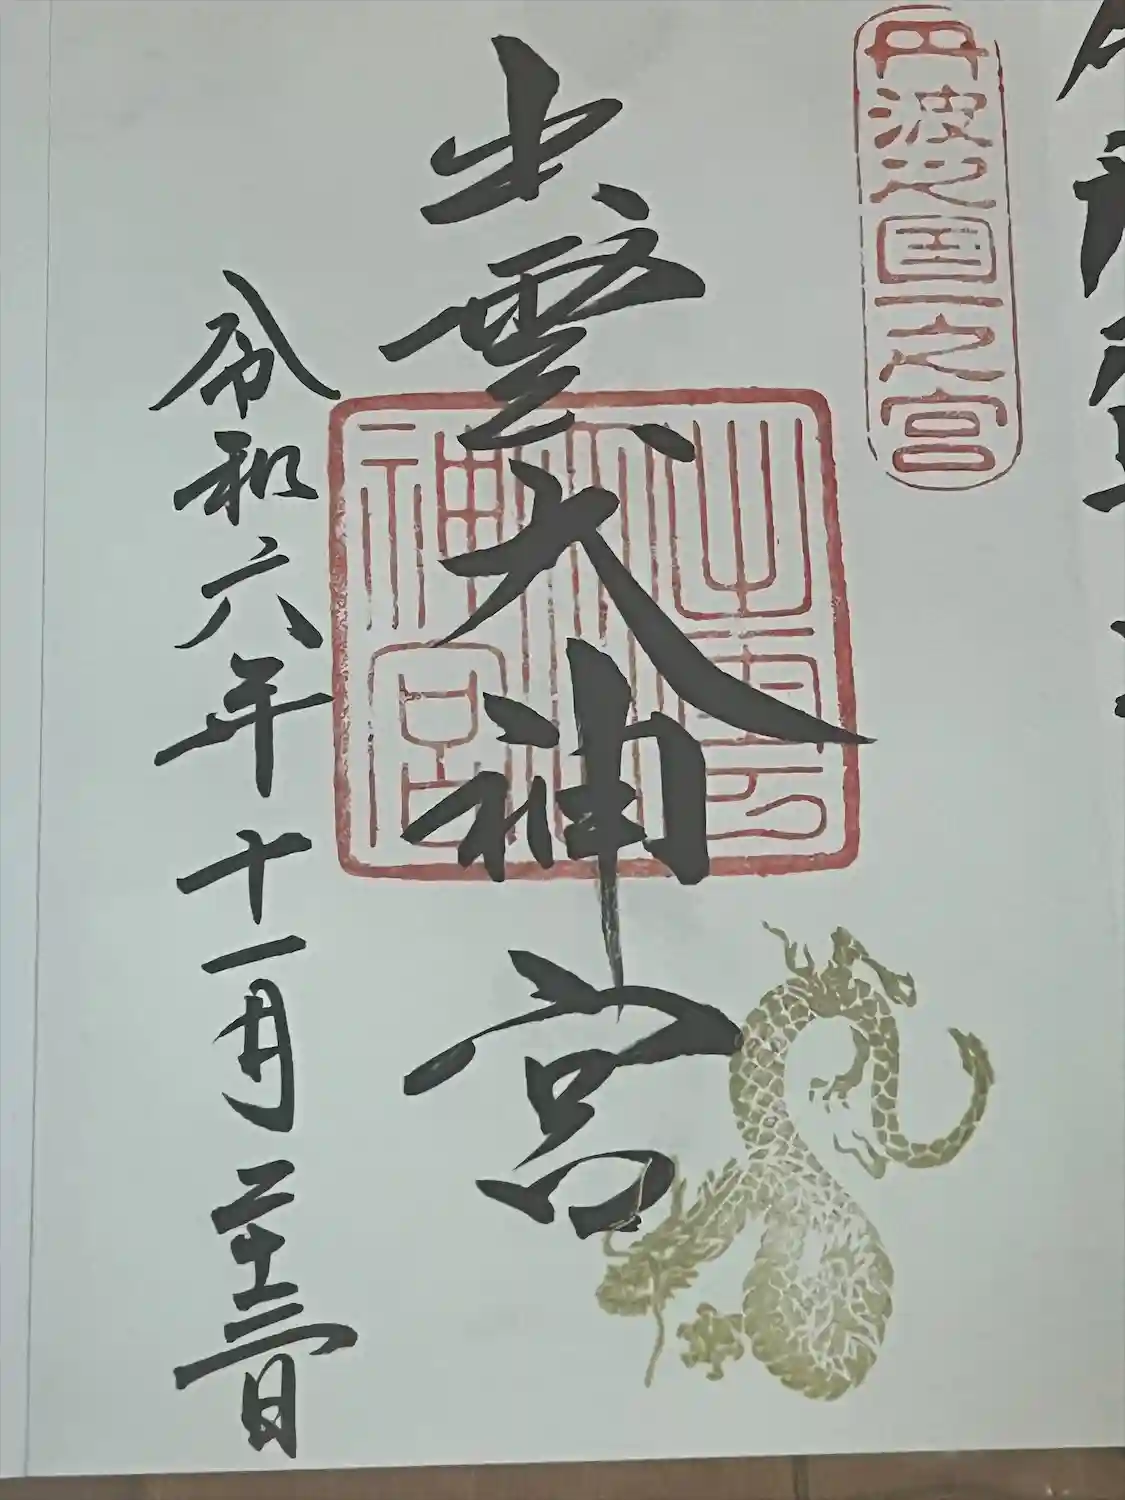 丹波之国一之宮
出雲大神宮
出雲大神宮
令和六年十一月二十三日